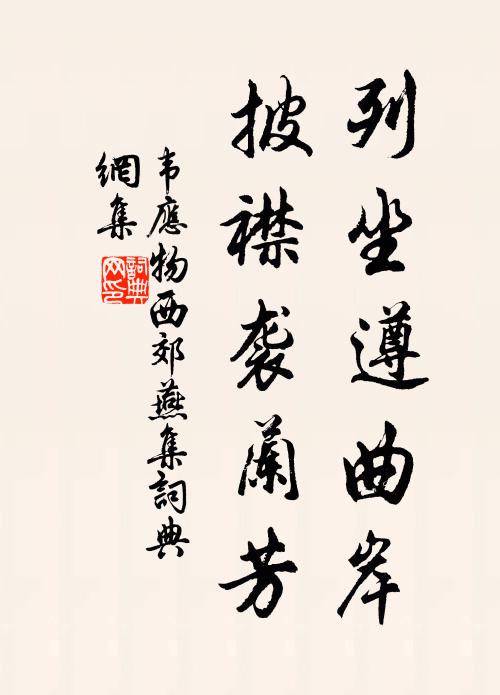 列坐遵曲岸
披襟袭蘭芳
韦應物西郊燕集詞典
網集
詞典
网印